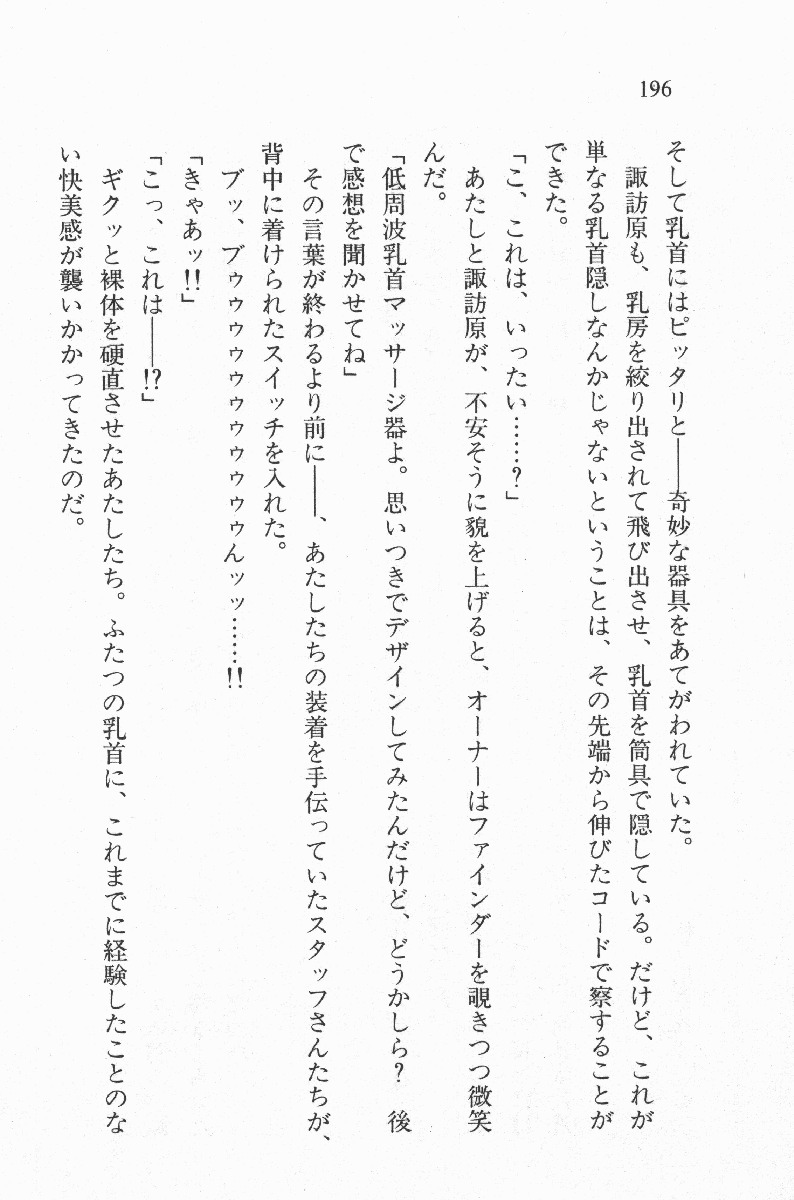 196
そして乳首にはピッタリと――奇妙な器具をあてがわれていた。
諏訪原も、乳房を絞り出されて飛び出させ、乳首を筒具で隠している。だけど、これが
単なる乳首隠しなんかじゃないということは、その先端から伸びたコードで察することが
できた。
「こ、これは、いったい……?」
あたしと諏訪原が、不安そうに貌を上げると、オーナーはファインダーを覗きつつ微笑
んだ。
「低周波乳首マッサージ器よ。思いつきでデザインしてみたんだけど、どうかしら? 後
で感想を聞かせてね」
その言葉が終わるより前に――、あたしたちの装着を手伝っていたスタッフさんたちが、
背中に着けられたスイッチを入れた。
ブッ、ブゥゥゥゥゥゥゥゥゥゥゥんッッ……!!
「きゃあッ!!」
「こっ、これは――!?」
ギクッと裸体を硬直させたあたしたち。ふたつの乳首に、これまでに経験したことのな
い快美感が襲いかかってきたのだ。